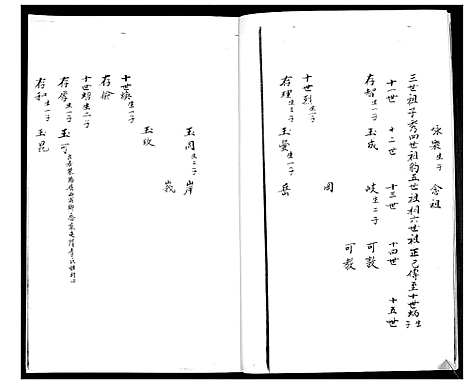 咏樂生子 念祖
三世祖子秀四世祖豹五世祖相六世祖正已傳至十世炳生子
十一世 十二世 十三世 十四世 十五世
存智生一子 玉成 岐生二子 可敦
可教
岡
十世烈生一子
存理生三子 玉曼生一子 岳
玉岡生二子 岸
峩
玉玫
十世煥生一子
存徐
十世炤生二子
存厚生一子 玉可
存和生一子 玉昆